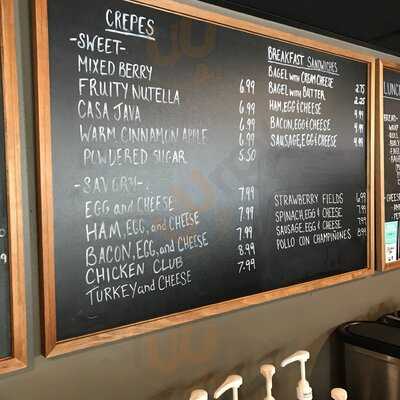 CREPES
-SWEET-
MIXED BERRY 6.99
FRUITY NUTELLA 6.99
CASA JAVA 6.99
WARM CINNAMON APPLE 6.99
POWDERED SUGAR 5.50
-SAVORY-
EGG and CHEESE 7.99
HAM, EGG, and CHEESE 7.99
BACON, EGG, and CHEESE 7.99
CHICKEN CLUB 8.99
TURKEY and CHEESE 7.99
BREAKFAST SANDWICHES
BAGEL WITH CREAM CHEESE 2.75
BAGEL WITH BUTTER 2.25
HAM, EGG & CHEESE 4.99
BACON, EGG & CHEESE 4.99
SAUSAGE, EGG & CHEESE 4.99
STRAWBERRY FIELDS 6.99
SPINACH, EGG & CHEESE 7.99
SAUSAGE, EGG & CHEESE 7.99
POLLO CON CHAMPIÑONES 8.99
LUNC
BREAD-